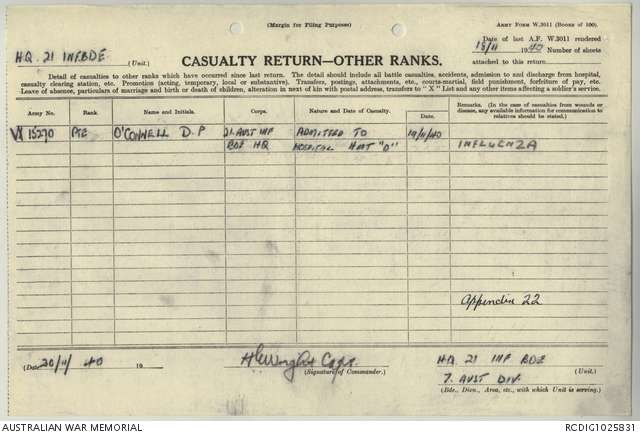 (Margin for Filing Purposes)
ARMY FORM W.3011 (BOOKS OF 100).
Date of last A.F. W.3011 rendered
18/11 1940 Number of sheets
attached to this return.
HQ. 21 INF.BDE (Unit.)
CASUALTY RETURN—OTHER RANKS.
Detail of casualties to other ranks which have occurred since last return. The detail should include all battle casualties, accidents, admission to and discharge from hospital,
casualty clearing station, etc. Promotion (acting, temporary, local or substantive). Transfers, postings, attachments, etc., courts-martial, field punishment, forfeiture of pay, etc.
Leave of absence, particulars of marriage and birth or death of children, alteration in next of kin with postal address, transfers to "X" List and any other items affecting a soldier's service.
Army No. Rank. Name and Initials. Corps. Nature and Date of Casualty. Date. Remarks. (In the case of casualties from wounds or
disease, any available information for communication to
relatives should be stated.)
VX 15270 PTE O'CONNELL D.P 21 AUST INF ADMITTED TO 19/11/40
BDE HQ HOSPITAL "D" INFLUENZA
Appendix 22
(Date) 20/11/40 19
Capt.
(Signature of Commander.)
HQ. 21 INF BDE
(Unit.)
7. AUST DIV.
(Bde., Divn., Area, etc., with which Unit is serving.)
AUSTRALIAN WAR MEMORIAL
RCDIG1025831